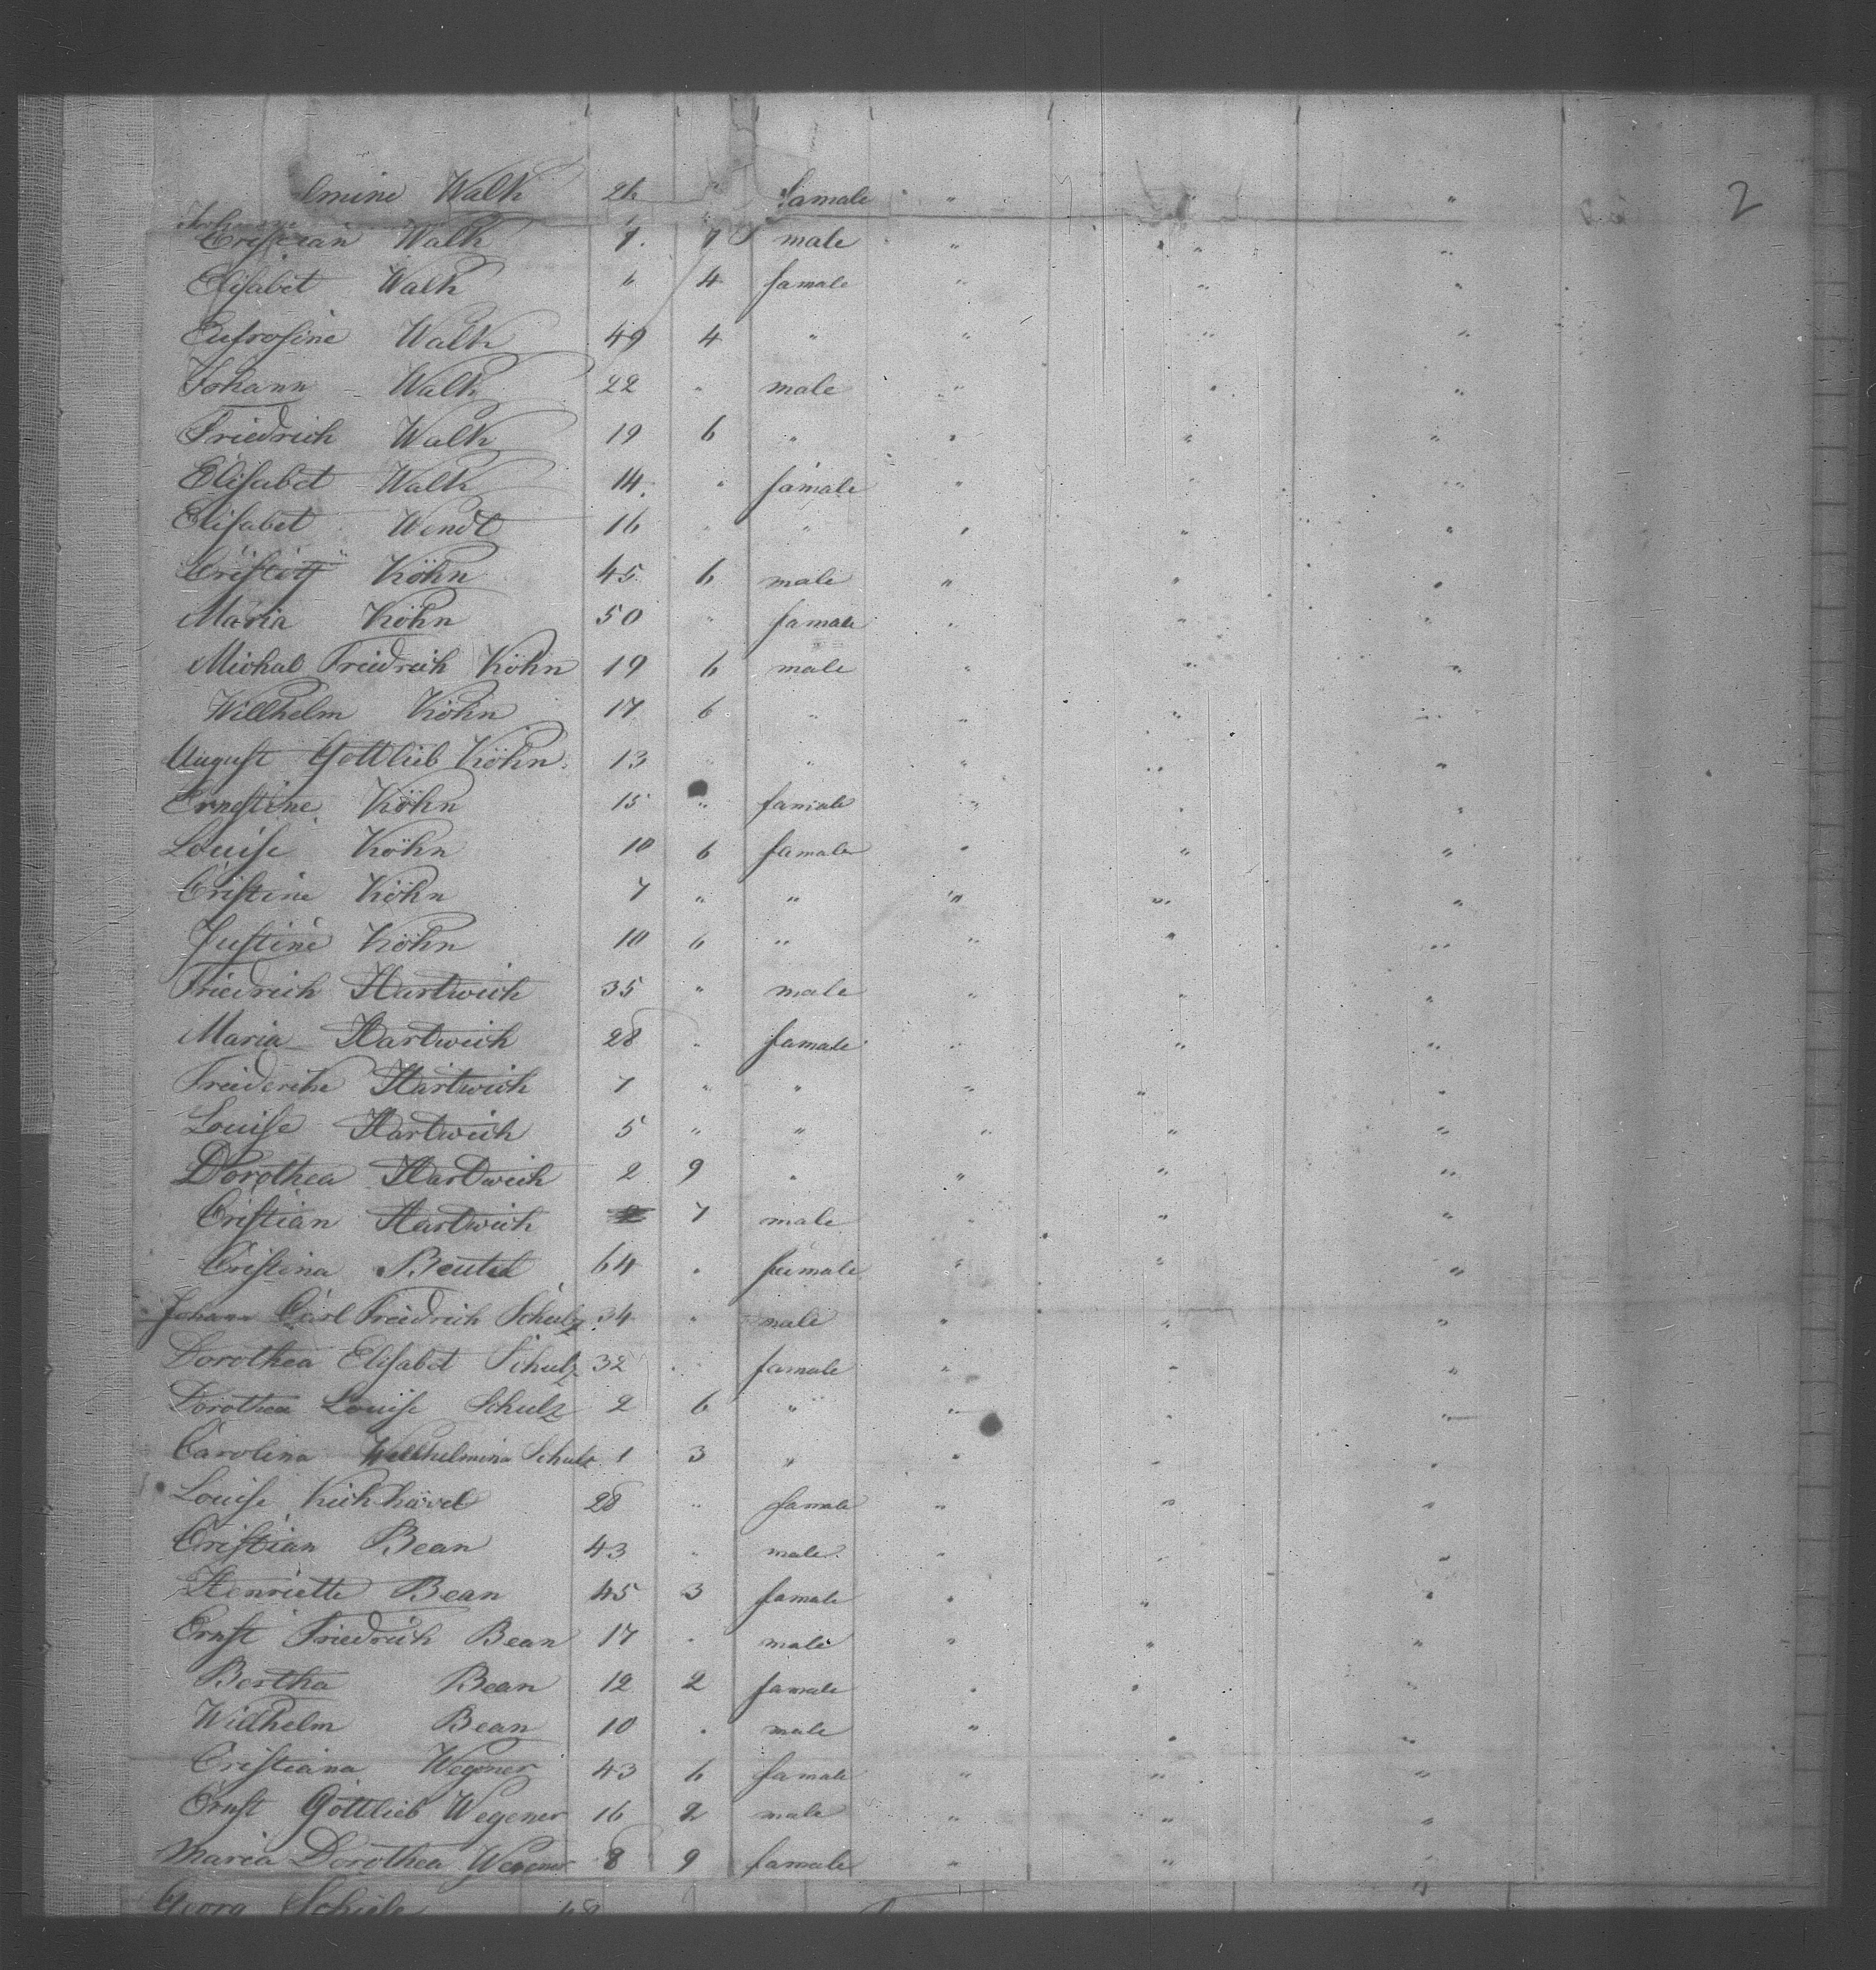 2
lmine Walk 26 " famale " " "
Cristian Walk 7. 7 male " " "
Elisabet Walk " 4 famale " " "
Eufrosine Walk 49 4 " " " "
Johann Walk 22 " male " " "
Friedrich Walk 19 6 " " " "
Elisabet Walk 14. " famale " " "
Elisabet Wendt 16 " " " " "
Köhn 45 6 male " " "
Maria Köhn 50 " famale " " "
Michal Freidrich Köhn 19 6 male " " "
Willhelm Köhn 17 6 " " " "
August Gottlieb Köhn. 13 " " " " "
Ernestine Köhn 15 " famale " " "
Louise Köhn 10 6 famale " " "
Cristine Köhn 7 " " " " "
Justine Köhn 10 6 " " " "
Friedrich Hartwich 35 " male " " "
Maria Hartwich 28 " famale " " "
Freiderike Hartwich 7 " " " " "
Louise Hartwich 5 " " " " "
Dorothea Hartwich 2 9 " " " "
Cristian Hartwich 7 male " " "
Cristina Beutel 64 " female " " "
Johann Carl Freidrich Schulz 34 " male " " "
Dorothea Elisabet Schulz 32 " famale " " "
Dorothea Louise Schulz 2 6 " " " "
Carolina Willhelmina Schulz 1 3 " " " "
Louise 28 " famale " " "
Cristian Bean 43 " male " " "
Henriette Bean 45 3 famale " " "
Ernst Friedrich Bean 17 " male " " "
Bertha Bean 12 2 famale " " "
Willhelm Bean 10 " male " " "
Cristiana Wegener 43 6 famale " " "
Ernst Gottlieb Wegener 16 2 male " " "
Maria Dorothea Wegener 8 9 famale " " "
Georg